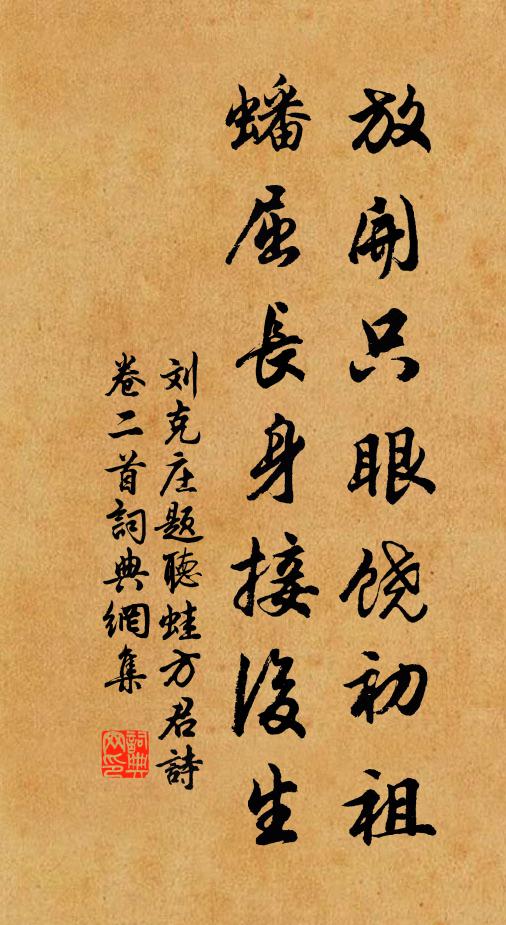 放開只眼饶初祖
蟠屈長身接後生
刘克庄题聽蛙方君詩
卷二首詞典網集
詞典網印